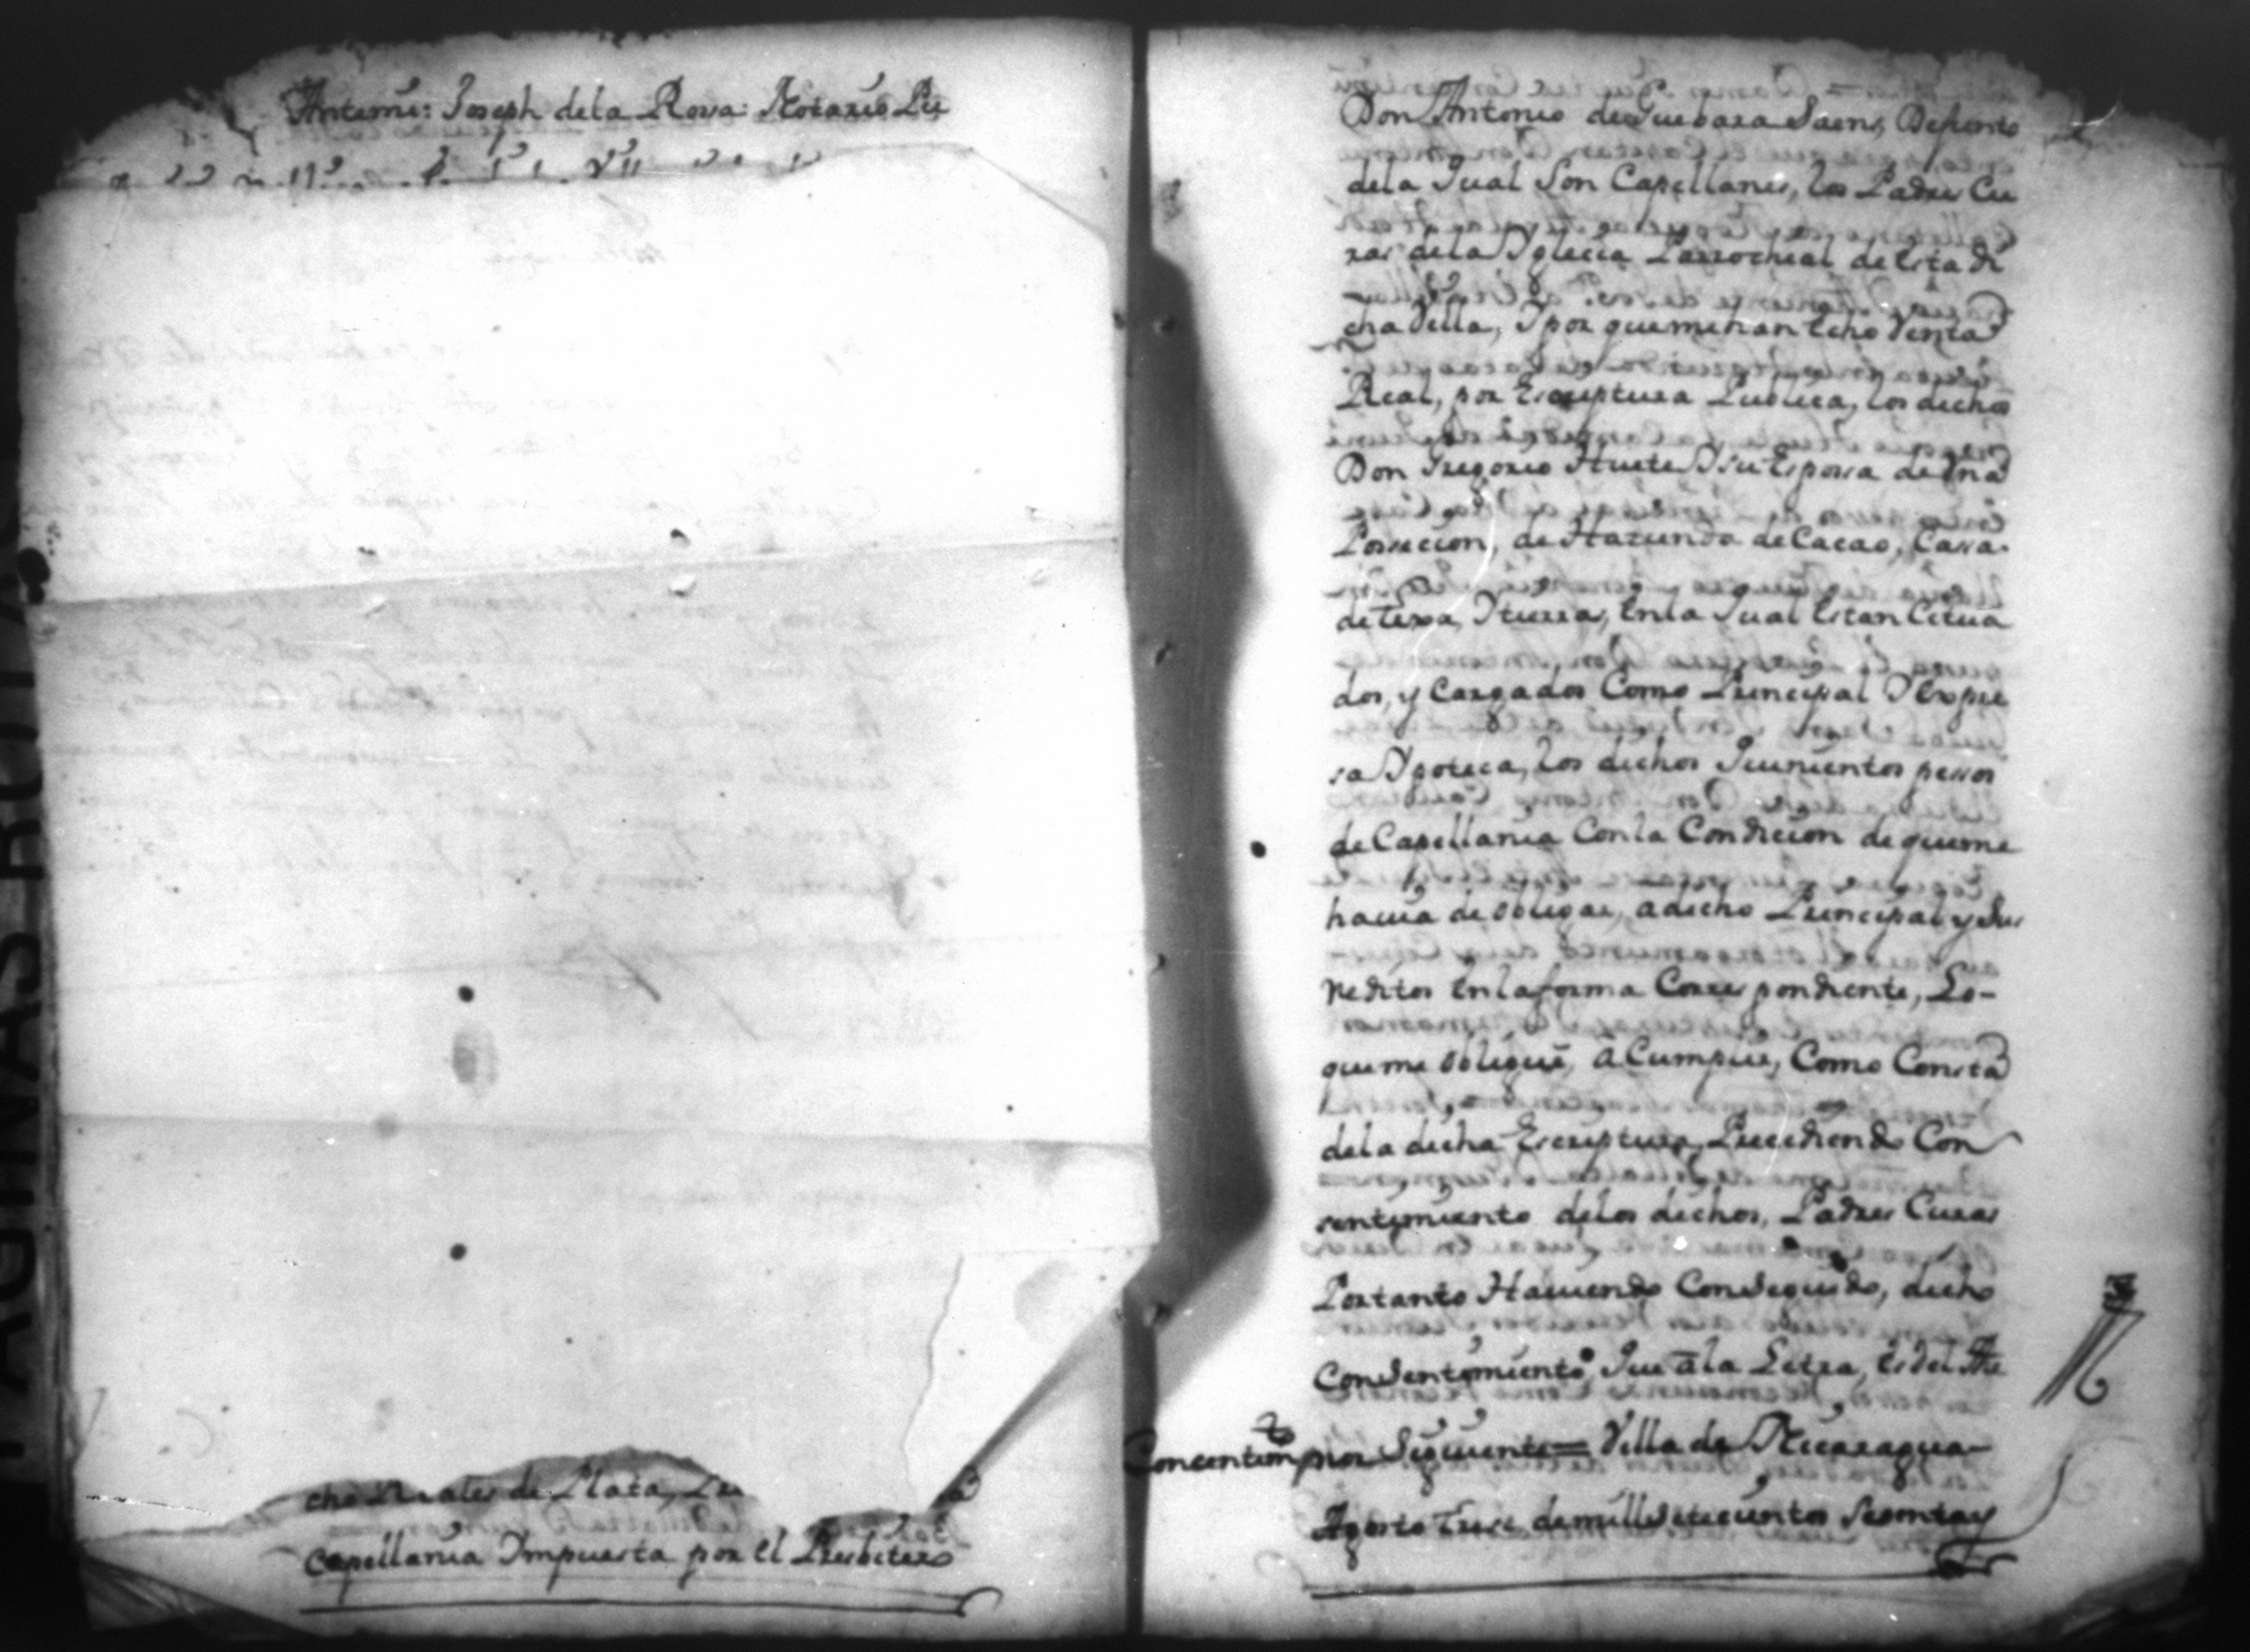 Antemi: Joseph dela Rosa: Notario Pu
cho Reales de Plata,
Capellania Ympuesta por el Presbitero
Don Antonio de Guebara Saens, Defunto
dela qual Son Capellanes, los Padres Cu
ras dela Yglecia Parrochial de esta di
cha Villa, Y por que me han echo Venta
Real, por Escriptura Publica, los dichos
Don Gregorio Huete Y su Esposa de Vna
Possecion, de Hazienda de Cacao, Cassa
de Texa, Y tierra, en la qual estan Citua
dos, y Cargados Como Principal Y expre
sa Ypoteca, los dichos quinientos pesos
de Capellania Con la Condicion de que me
havia de obligar, a dicho Principal y sus
reditos en la forma Correspondiente, Lo-
que me obligué, a Cumplir, Como Consta
dela dicha Escriptura, Precediendo Con
sentimiento delos dichos, Padres Curas
Portanto Haviendo Conseguido, dicho
Consentimiento, que a la Letra, es del The
Concentimto
nor Siguiente = Villa de Nicaragua
Agosto trese de mill setecientos Sesenta y